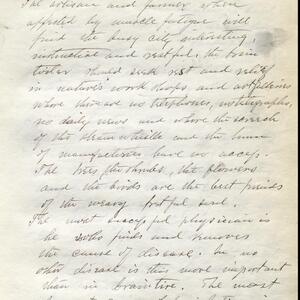 The artisan and farmer when
affected by muscle fatigue will
find the busy city interesting,
instructive and restful, the brain
toiler should seek rest and relief
in nature's work shops and art galleries
where there are no telephones, no telegraphs,
no daily news and where the screech
of the steam whistle and the hum
of manufactories have no access.
The trees, the shrubs, the flowers
and the birds are the best friends
of the weary fretful soul.
The most successful physician is
he who finds and removes
the cause of disease. In no
other disease is this more important
than in The most